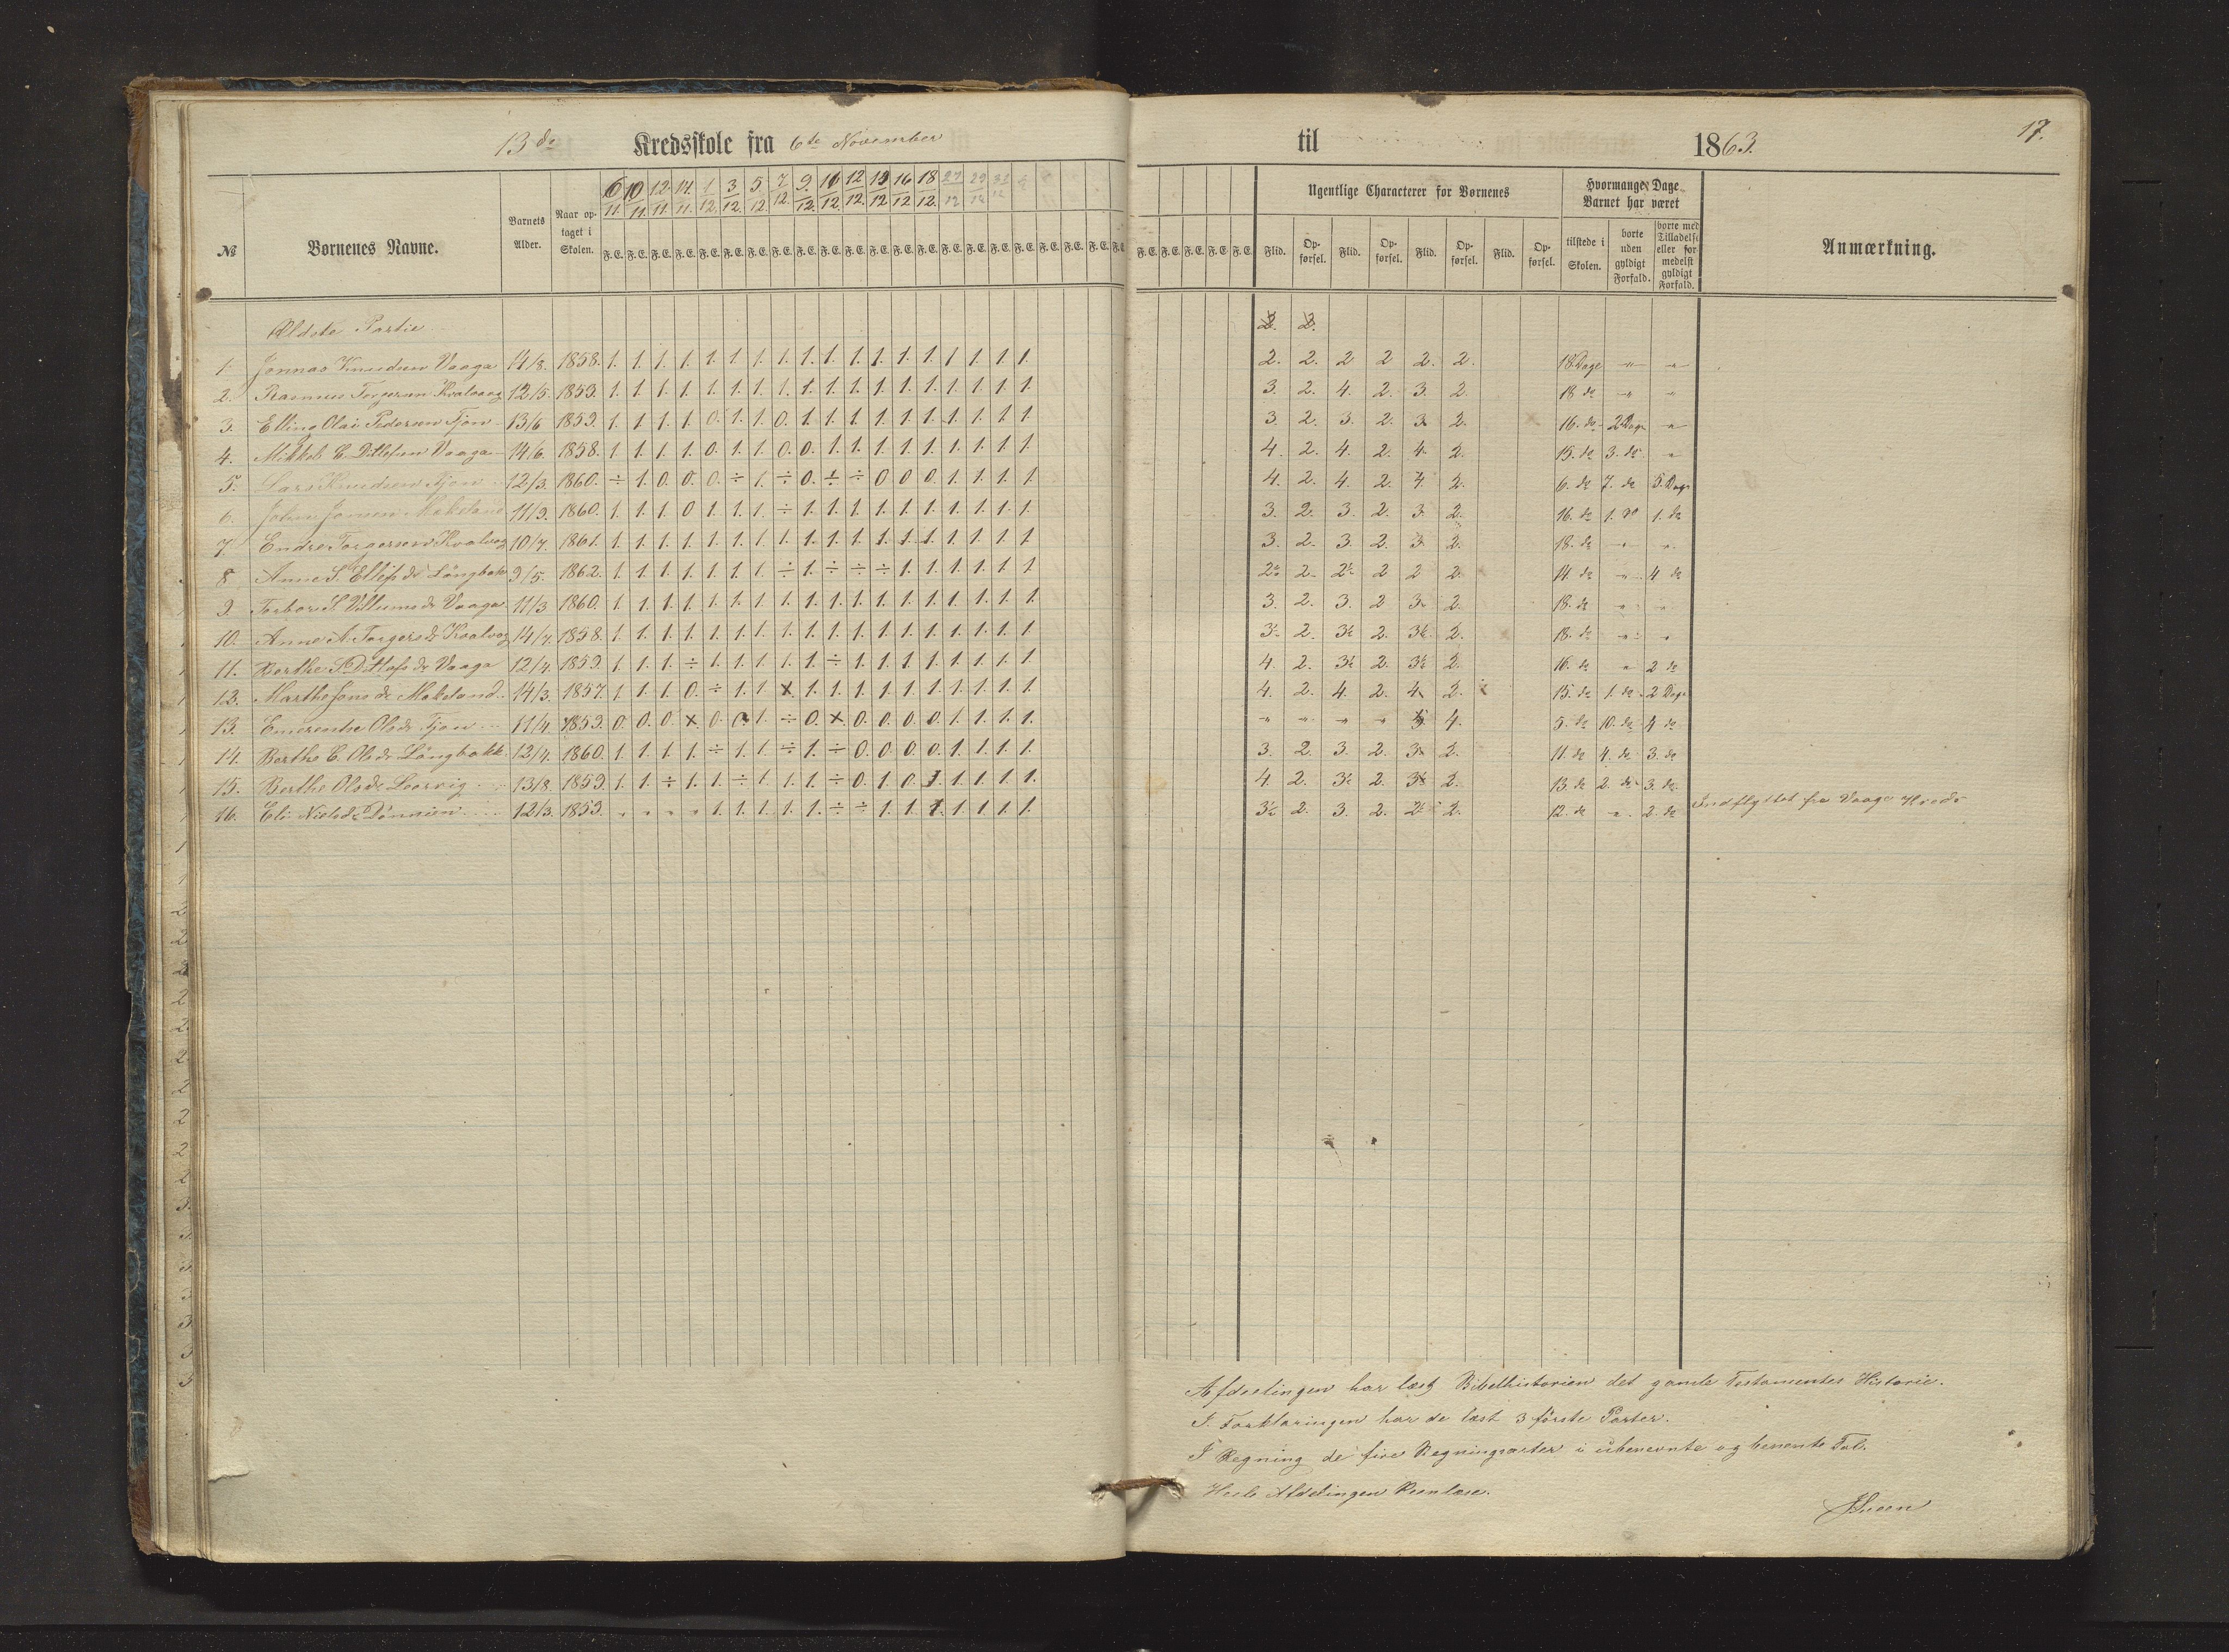 13de Kredsskole fra 6te November til 1863. 17.
№ Børnenes Navne. Barnets Alder. Naar optaget i Skolen. 6/11. 10/11. 12/11. 14/11. 1/12. 3/12. 5/12. 7/12. 9/12. 10/12. 12/12. 15/12 16/12 18/12.
Ugentlige Characterer for Børnenes Hvormange Dage Barnet har været Anmærkning.
F.E. F.E. F.E. F.E. F.E. F.E. F.E. F.E. F.E. F.E. F.E. F.E. F.E. F.E. F.E. F.E. F.E. F.E. F.E. F.E. F.E.
F.E. F.E. F.E. F.E. F.E. Flid. Opførsel. Flid. Opførsel. Flid. Opførsel. Flid. Opførsel. tilstede i Skolen. borte uden gyldigt Forfald. borte med Tilladelse eller formedelst gyldigt Forfald.
Ældste Partie
1. Jonnas Knudsen Vaaga 14/8. 1858. 1. 1. 1. 1. 1. 1. 1. 1. 1. 1. 1. 1. 1. 1. 1. 1. 1. 1. 2. 2. 2 2 2. 2. 18 Dage " "
2. Rasmus Torgersen Kvalvaag 12/5. 1859. 1. 1. 1. 1. 1. 1. 1. 1. 1. 1. 1. 1. 1. 1. 1. 1. 1. 1 3. 2. 4. 2. 3. 2. 18 do " "
3. Elling Olai Pedersen Tjøn 13/6 1859. 1. 1. 1. 1. 0. 1. 1. 0. 1. 1. 1. 1. 1. 1. 1. 1. 1. 1 3. 2. 3. 2. 3. 2. 16. do 2 Dage "
4. Mikkel E. Ditlefsen Vaaga 14/6. 1858. 1. 1. 1. 1. 0. 1. 1. 0. 0. 1. 1. 1. 1. 1. 1. 1. 1. 1 4. 2. 4. 2. 4. 2. 15. do 3. do "
5. Lars Knudsen Tjøn 12/3. 1860. ÷ 1. 0. 0. 0. ÷ 1. ÷ 0. ÷ ÷ 0 0 0 1. 1. 1. 1 4. 2. 4. 2. 4. 2. 6. do 7. do 5. Dage
6. Johan Jonsen Mækeland 11/9. 1860. 1. 1. 1. 0 1. 1. 1. ÷ 1. 1. 1. 1. 1. 1. 1. 1. 1. 1 3. 2. 3. 2. 3. 2. 16. do 1. do 1. do
7. Endre Torgersen Kvalvaag 10/7. 1861. 1. 1. 1. 1. 1. 1. 1. 1. 1. 1. 1. 1. 1. 1. 1. 1. 1. 1 3. 2. 3. 2. 3. 2. 18. do " "
8 Anne S. Ellefsdr Långbak 9/5. 1862. 1. 1. 1. 1. 1. 1. 1. ÷ 1. ÷ ÷ ÷ 1. 1. 1. 1. 1. 1 2 2. 2 2 2 2. 14. do " 4 do
9. Torbor S. Villumsdr Vaaga 11/3 1860. 1. 1. 1. 1. 1. 1. 1. 1. 1. 1. 1. 1. 1. 1. 1. 1. 1. 1. 3. 2. 3. 2 3. 2. 18. do " "
10. Anne A. Torgersdr Kvalvag 14/7. 1858. 1. 1. 1. 1. 1. 1. 1. 1. 1. 1. 1. 1. 1. 1. 1. 1. 1. 1 3½ 2. 3½ 2. 3½ 2. 18. do " "
11. Berthe S. Ditlefsdr Vaaga 12/4. 1859. 1. 1. 1. ÷ 1. 1. 1. 1. 1. ÷ 1. 1. 1. 1. 1. 1. 1. 1 4. 2. 3½ 2. 3½ 2. 16. do " 2 do
12. Marthe Jonsdr Mækeland 14/3. 1857. 1. 1. 1. 0. ÷ 1. 1. x 1. 1. 1. 1. 1. 1. 1. 1. 1. 1 4. 2. 4. 2. 4. 2. 15. do 1. do 2 Dage
13. Emerentse Olsdr Tjøn 11/4. 1859. 0. 0. 0. x 0. 0. 1. ÷ 0. x 0. 0. 0. 0. 1. 1. 1. 1 " " " " 5. 4. 5. do 10. do 4 do
14. Berthe C. Olsdr Långbakk 12/4. 1860. 1. 1. 1. 1. ÷ 1. 1. ÷ 1. ÷ 0. 0. 0. 0. 1. 1. 1. 1. 3. 2. 3. 2. 3. 2. 11. do 4. do 3. do
15. Berthe Olsdr Leervig 13/8. 1859. 1. 1. ÷ 1. 1. ÷ 1. 1. 1. ÷ 0. 1. 0. 1. 1. 1. 1. 1. 4. 2. 3½ 2. 3½ 2. 13. do 2. do 3. do
16. Eli Nielsdr 12/3. 1859. " " " " 1. 1. 1. 1. 1. ÷ ÷ 1. 1. 1. 1. 1. 1. 1. 3½ 2. 3. 2. 2½ 2. 12. do " 2. do Indflyttet fra Vaage Kreds
Afdeelingen har læst Bibelhistorien det gamle Testamentes Historie.
I Forklaringen har de læst 3 første Parter.
I Regning de fire Regningsarter i übenevnte og benevnte Tal.
Hele Afdelingen Reenlæse.